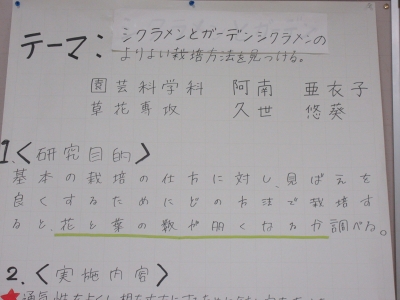 テーマ: シクラメンとガーデンシクラメンの
よりよい栽培方法を見つける。
園芸科学科 阿南 亜衣子
草花専攻 久世 悠葵
1.<研究目的>
基本の栽培の仕方に対し、見ばえを
良くするためにどの方法で栽培す
ると、花と葉の数が多くなるか調べる。
2.<実施内容>
★通気性をよくし